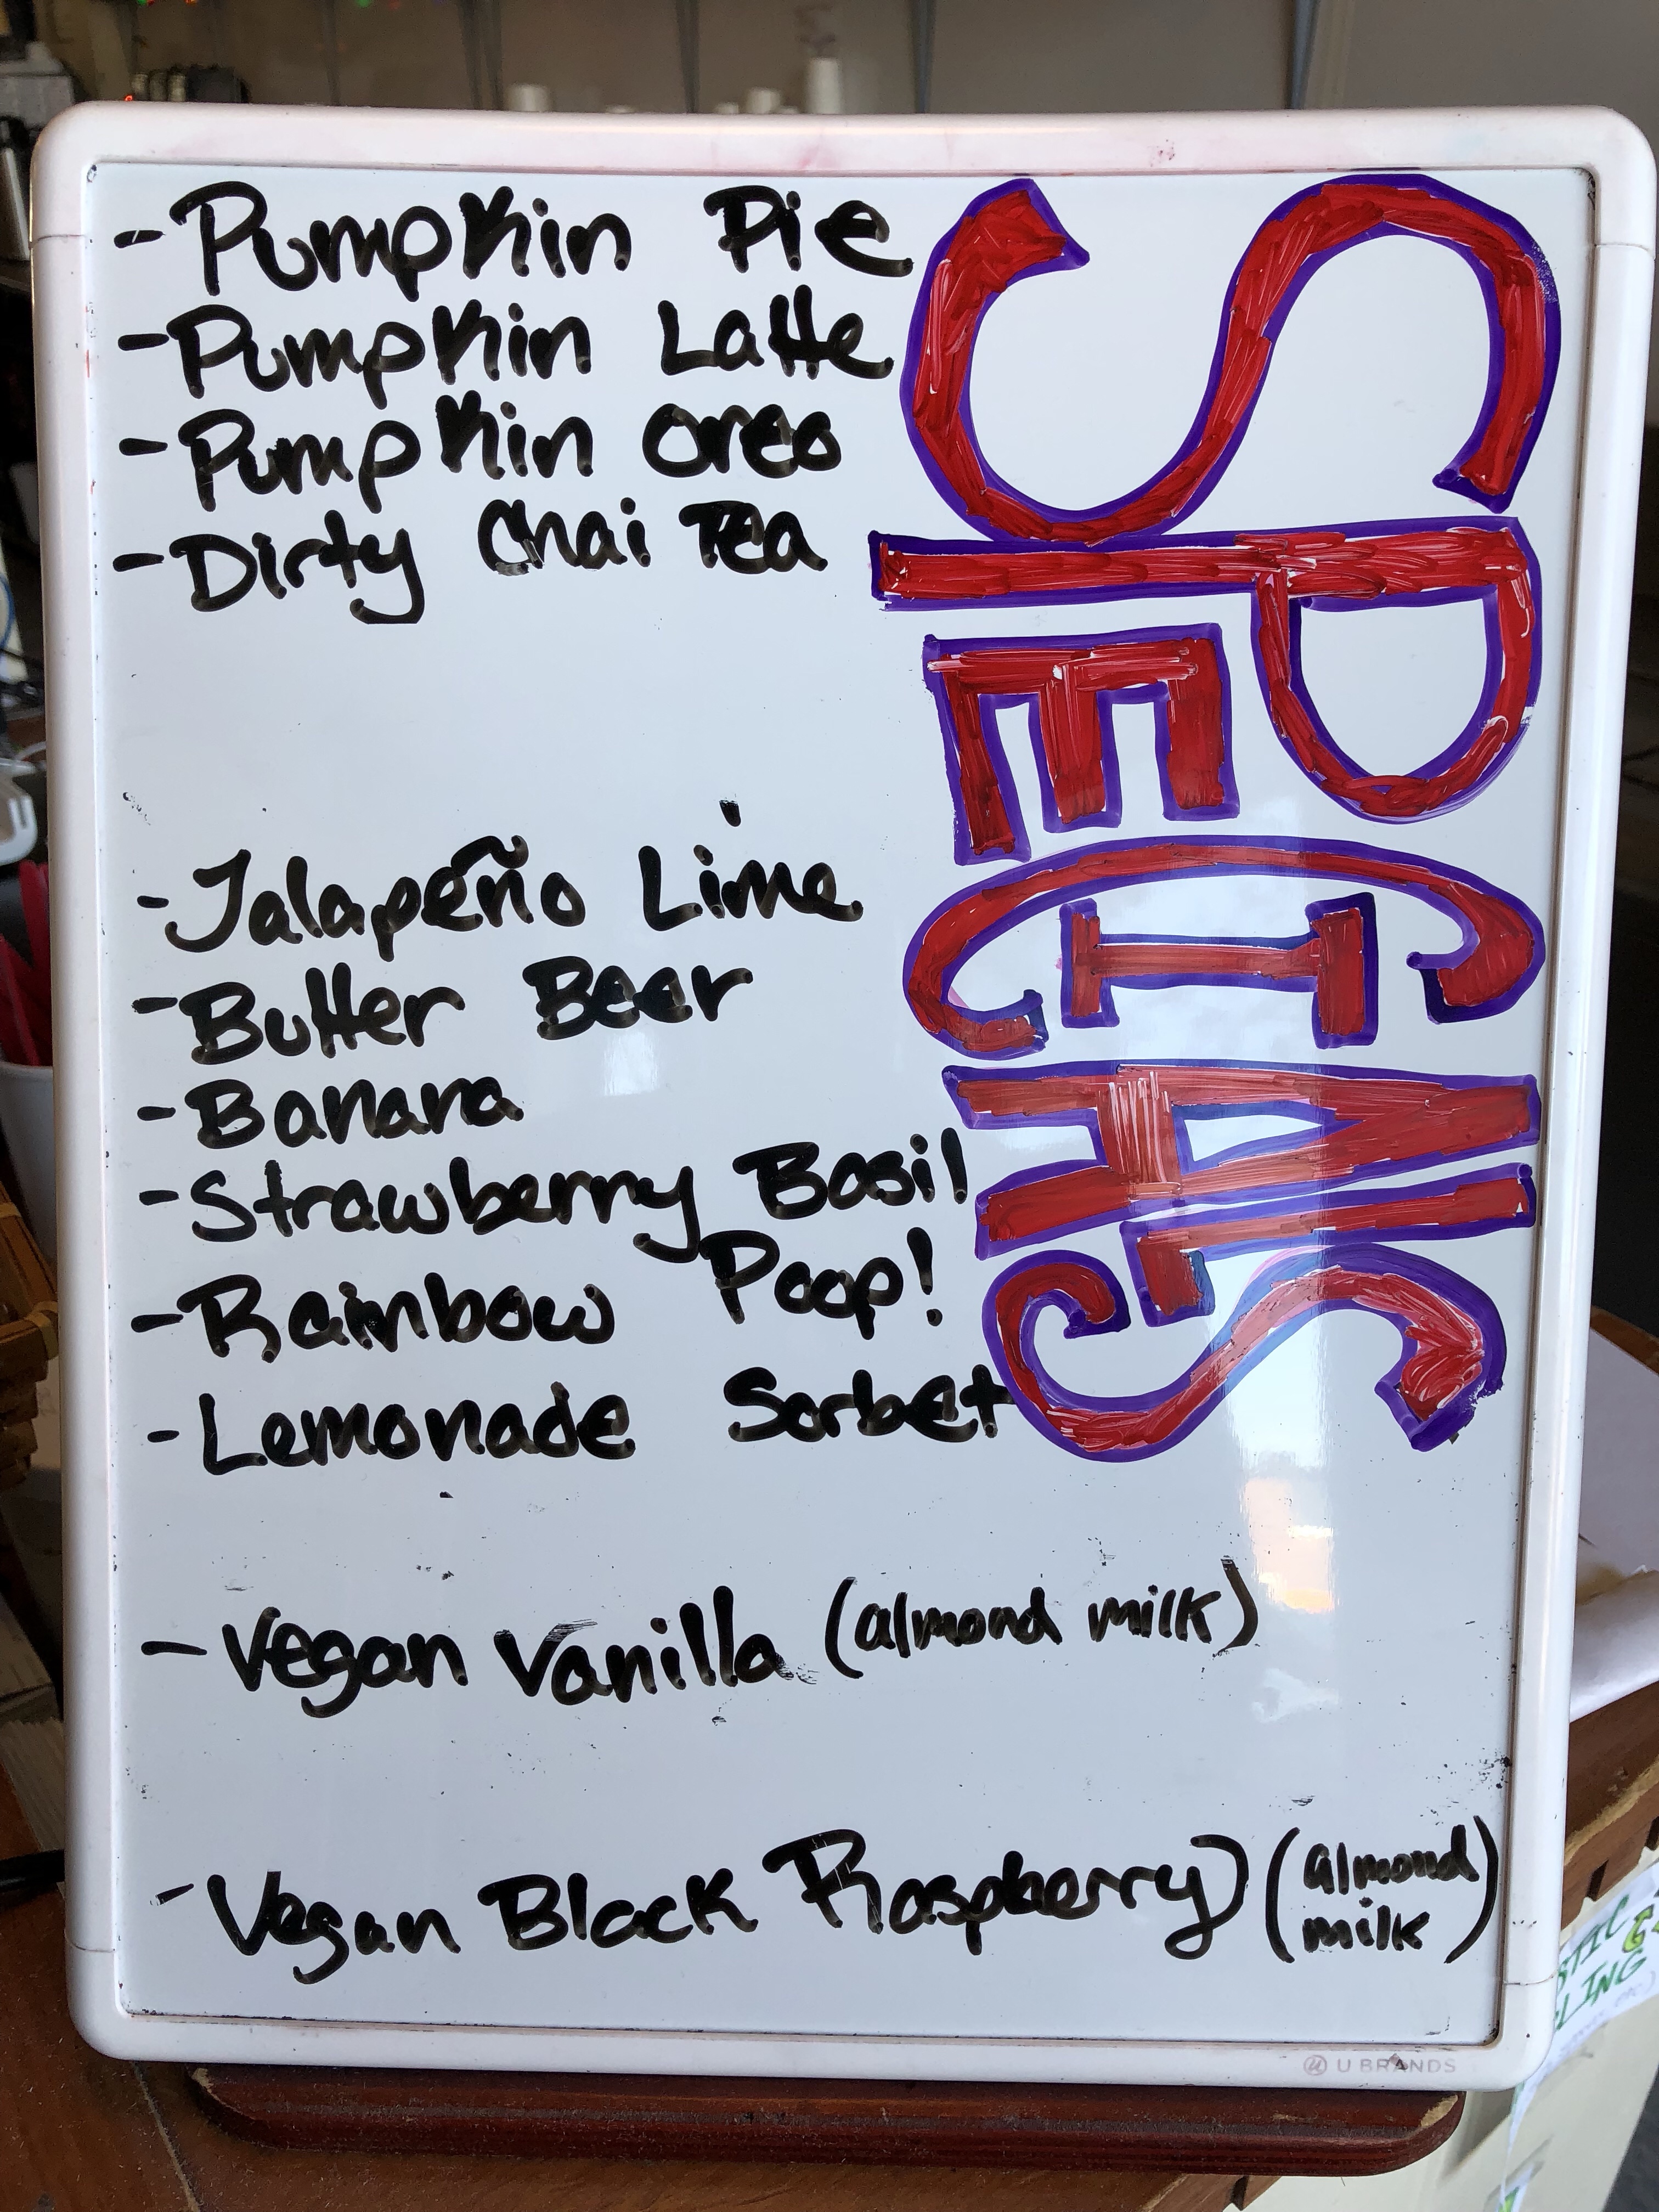 - Pumpkin Pie
- Pumpkin Latte
- Pumpkin Oreo
- Dirty Chai Tea
- Jalapeño Lime
- Butter Beer
- Banana
- Strawberry Basil
- Rainbow Poop!
- Lemonade Sorbet
- Vegan Vanilla (almond milk)
- Vegan Black Raspberry (almond
milk)
SPECIALS
U BRANDS